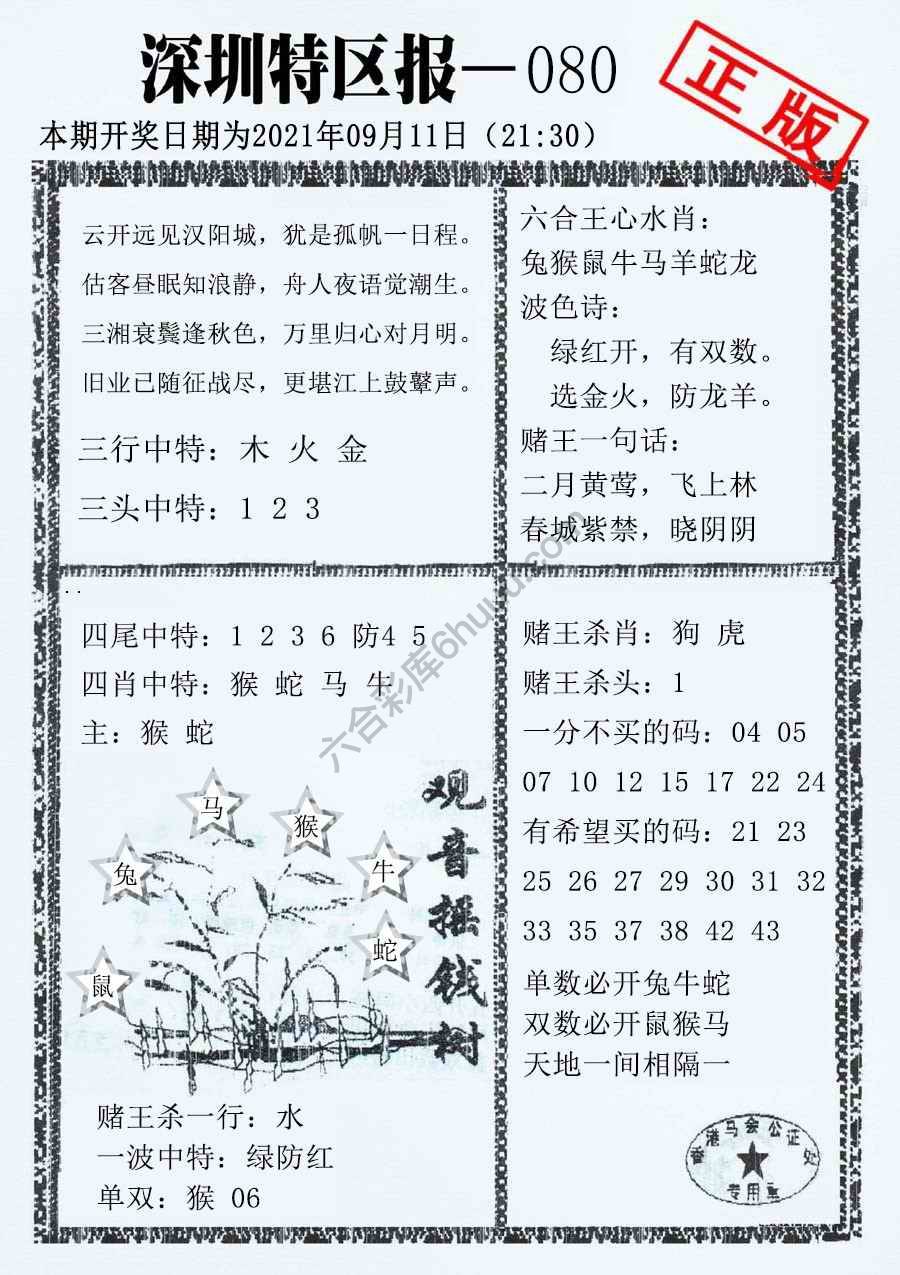 深圳特区报—080
正版
本期开奖日期为2021年09月11日（21:30）
云开远见汉阳城，犹是孤帆一日程。
估客昼眠知浪静，舟人夜语觉潮生。
三湘衰鬓逢秋色，万里归心对月明。
旧业已随征战尽，更堪江上鼓鼙声。
三行中特：木 火 金
三头中特：1 2 3
六合王心水肖：
兔猴鼠牛马羊蛇龙
波色诗：
绿红开，有双数。
选金火，防龙羊。
赌王一句话：
二月黄莺，飞上林
春城紫禁，晓阴阴
四尾中特：1 2 3 6 防4 5
四肖中特：猴 蛇 马 牛
主：猴 蛇
马
猴
兔
牛
蛇
鼠
观音摇钱树
赌王杀一行：水
一波中特：绿防红
单双：猴 06
赌王杀肖：狗 虎
赌王杀头：1
一分不买的码：04 05
07 10 12 15 17 22 24
有希望买的码：21 23
25 26 27 29 30 31 32
33 35 37 38 42 43
单数必开兔牛蛇
双数必开鼠猴马
天地一间相隔一
香港马会公证处
专用章
六合彩库6huu.com